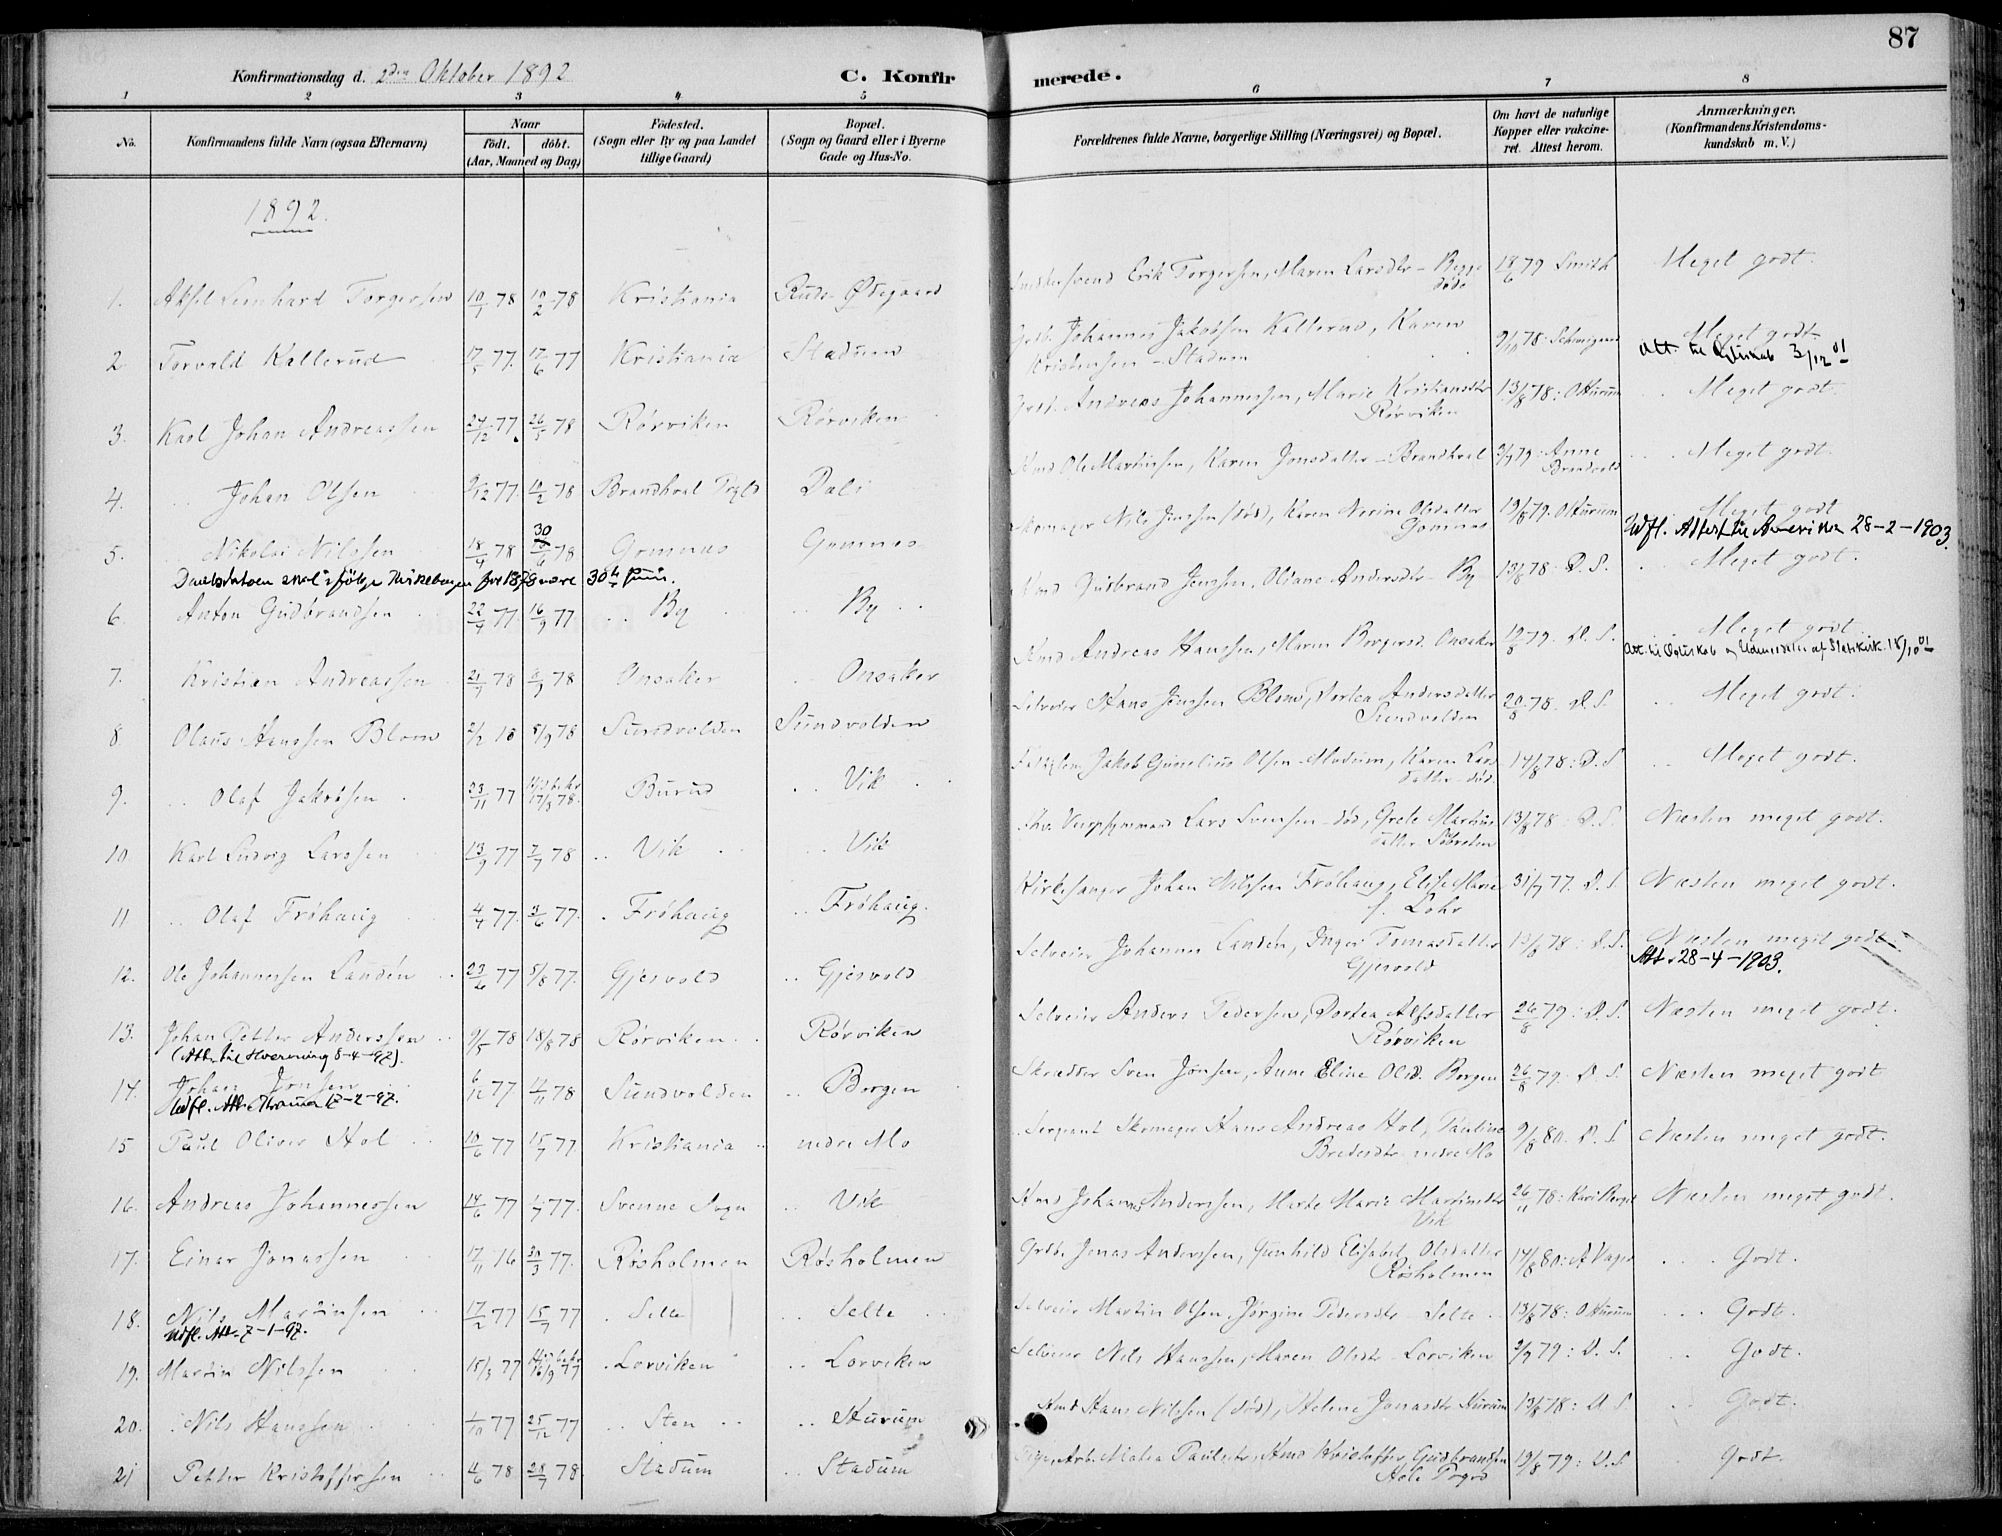 87
Konfirmationsdag d. 2den Oktober 1892
C. Konfir
merede.
1 2 3 4 5 6 7 8
No. Konfirmandens fulde Navn (ogsaa Efternavn)
Naar
født. døbt.
(Aar, Maaned og Dag)
Fødested.
(Sogn eller By og paa Landet
tillige Gaard)
Bopæl.
(Sogn og Gaard eller i Byerne
Gade og Hus-No.
Forældrenes fulde Navne, borgerlige Stilling (Næringsvei) og Bopæl.
Om havt de naturlige
Kopper eller vakcine-
ret. Attest herom.
Anmærkninger.
(Konfirmandens Kristendoms-
kundskab m. V.)
1892.
1. Aksel Leonhard Torgersen 10/1 78 10/2 78 Kristiania Ruds-Ødegaard Erik Torgersen, Maren Larsdtr - Begge
døde 18/6 79 Smith Meget godt.
2 Torvald Kallerud 17/5 77. 17/6 77 Kristiania Stadum Johannes Jakobsen Kallerud, Karen
Kristensen - Stadum 9/10 78 Meget godt
Att. til Ægteskab 3/12 01
3. Karl Johan Andreassen 24/12 77. 26/5 78 Rørviken Rørviken Andreas Johannessen, Marie Kristiansdtr
Rørviken 13/8 78: O Hurum Meget godt.
4. Johan Olsen 9/12 77. 10/2 78 Brandhval Dali Kmd Ole Martinsen, Karen Jonsdatter - Brandhval 3/9 79 Anne Meget godt.
5. Nikolai Nilssen 18/4 78 30/6 78 Gomnes Gomnes Skomager Nils Jenssen (død), Karen Nerine Olsdatter
Gomnes 19/8 79. O Hurum Meget godt
Udfl. Attest til Amerika 28-2-1903.
Daabsdatoen skal ifølge Kirkebogen for 1878 være 30te Juni.
6. Anton Gudbrandsen 22/7 77. 16/9 77 By By Kmd Gudbrand Jenssen, Oliane Andersdtr - By 13/8 78. D. S. Meget godt.
7. Kristian Andreassen 21/7 78 78 Onsaker Onsaker Kmd Andreas Hanssen, Maren Borgersd. Onsaker 19/8 79. D. S. Meget godt
Att. til Ægteskab 18/10 01
8 Olaus Hanssen Blom 2/2 78 8/9 78 Sundvolden Sundvolden Selveier Hans Jenssen Blom, Dortea Andersdatter
Sundvolden 20/8 78. D. S. Meget godt.
9. Olaf Jakobsen 23/11 77 17/3 78. Burud Vik Jakob Gunelius Olsen Modum, Karen Lars
datter død 14/8 78: D. S Meget godt.
10. Karl Ludvig Larssen 13/9 77 7/7 78 Vik Vik Lars Svensen død, Grete Martins
datter 13/8 78 D. S. Næsten meget godt.
11 Olaf Frøhaug 4/4 77. 3/6 77. Frøhaug Frøhaug. Kirkesanger Johan Nilssen Frøhaug, Elise Marie
f. Lohr 31/7 77. D. S. Næsten meget godt.
12. Ole Johannessen Landén 23/6 77 5/8 77. Gjesvold Gjesvold Selveier Johannes Landén, Inger Tomasdatter
Gjesvold 13/8 78: D. S. Næsten meget godt.
Att. 28-4-1903.
13. Johan Petter Anderssen 9/5 78 18/8 78 Rørviken Rørviken Selveier Anders Pedersen, Dortea Alfsdatter
Rørviken 26/8 79: D. S. Næsten meget godt.
(Att. til Hverrving 8-4-97).
14. Johan Jonsen 6/12 77. 4/11 78 Sundvolden Borgen Skrædder Sven Jonsen, Anne Eline Olsd. Borgen 26/8 79: D. S Næsten meget godt
Udfl. Att. 17-2-97.
15 Paul Oliver Hol 10/6 77 15/7 77. Kristiania nedre Mo Sergeant Skomager Hans Andreas Hol, Pauline
Bredesdtr nedre Mo 9/8 80. D. S Næsten meget godt.
16. Andreas Johannessen 14/6 77 77. Svenne Sogn Vik Kmd Johannes Anderssen, Marte Marie Martinsdtr
Vik 26/11 78: Kari Berget Næsten meget godt.
17. Einar Jonassen 17/11 76 30/3 77. Røsholmen Røsholmen Grdbr Jonas Anderssen, Gunhild Elisabet Olsdatter
Røsholmen 17/8 80: A Vager Godt.
18. Nils Martinsen 17/2 77 15/7 77 Selte Selte Selveier Martin Olsen, Jørgine Pedersdtr - Selte 13/8 78: O Hurum Godt.
Udfl. Att. 7-1-97.
19. Martin Nilssen 15/3 77 16/9 77 Lorviken Lorviken Selveier Nils Hanssen, Maren Olsdtr - Lorviken 3/9 79: D. S. Godt.
20. Nils Hanssen 1/10 77 25/12 77 Sten Hurum Kmd Hans Nilssen (død), Helene Jonasdtr Hurum 13/8 78: D S Godt.
21 Petter Kristoffersen 4/6 78 28/7 78 Stadum Stadum Malea Paulsdtr, Kmd Kristoffer Gudbrandsen
Hole Prgd 19/8 79: D. S Godt.